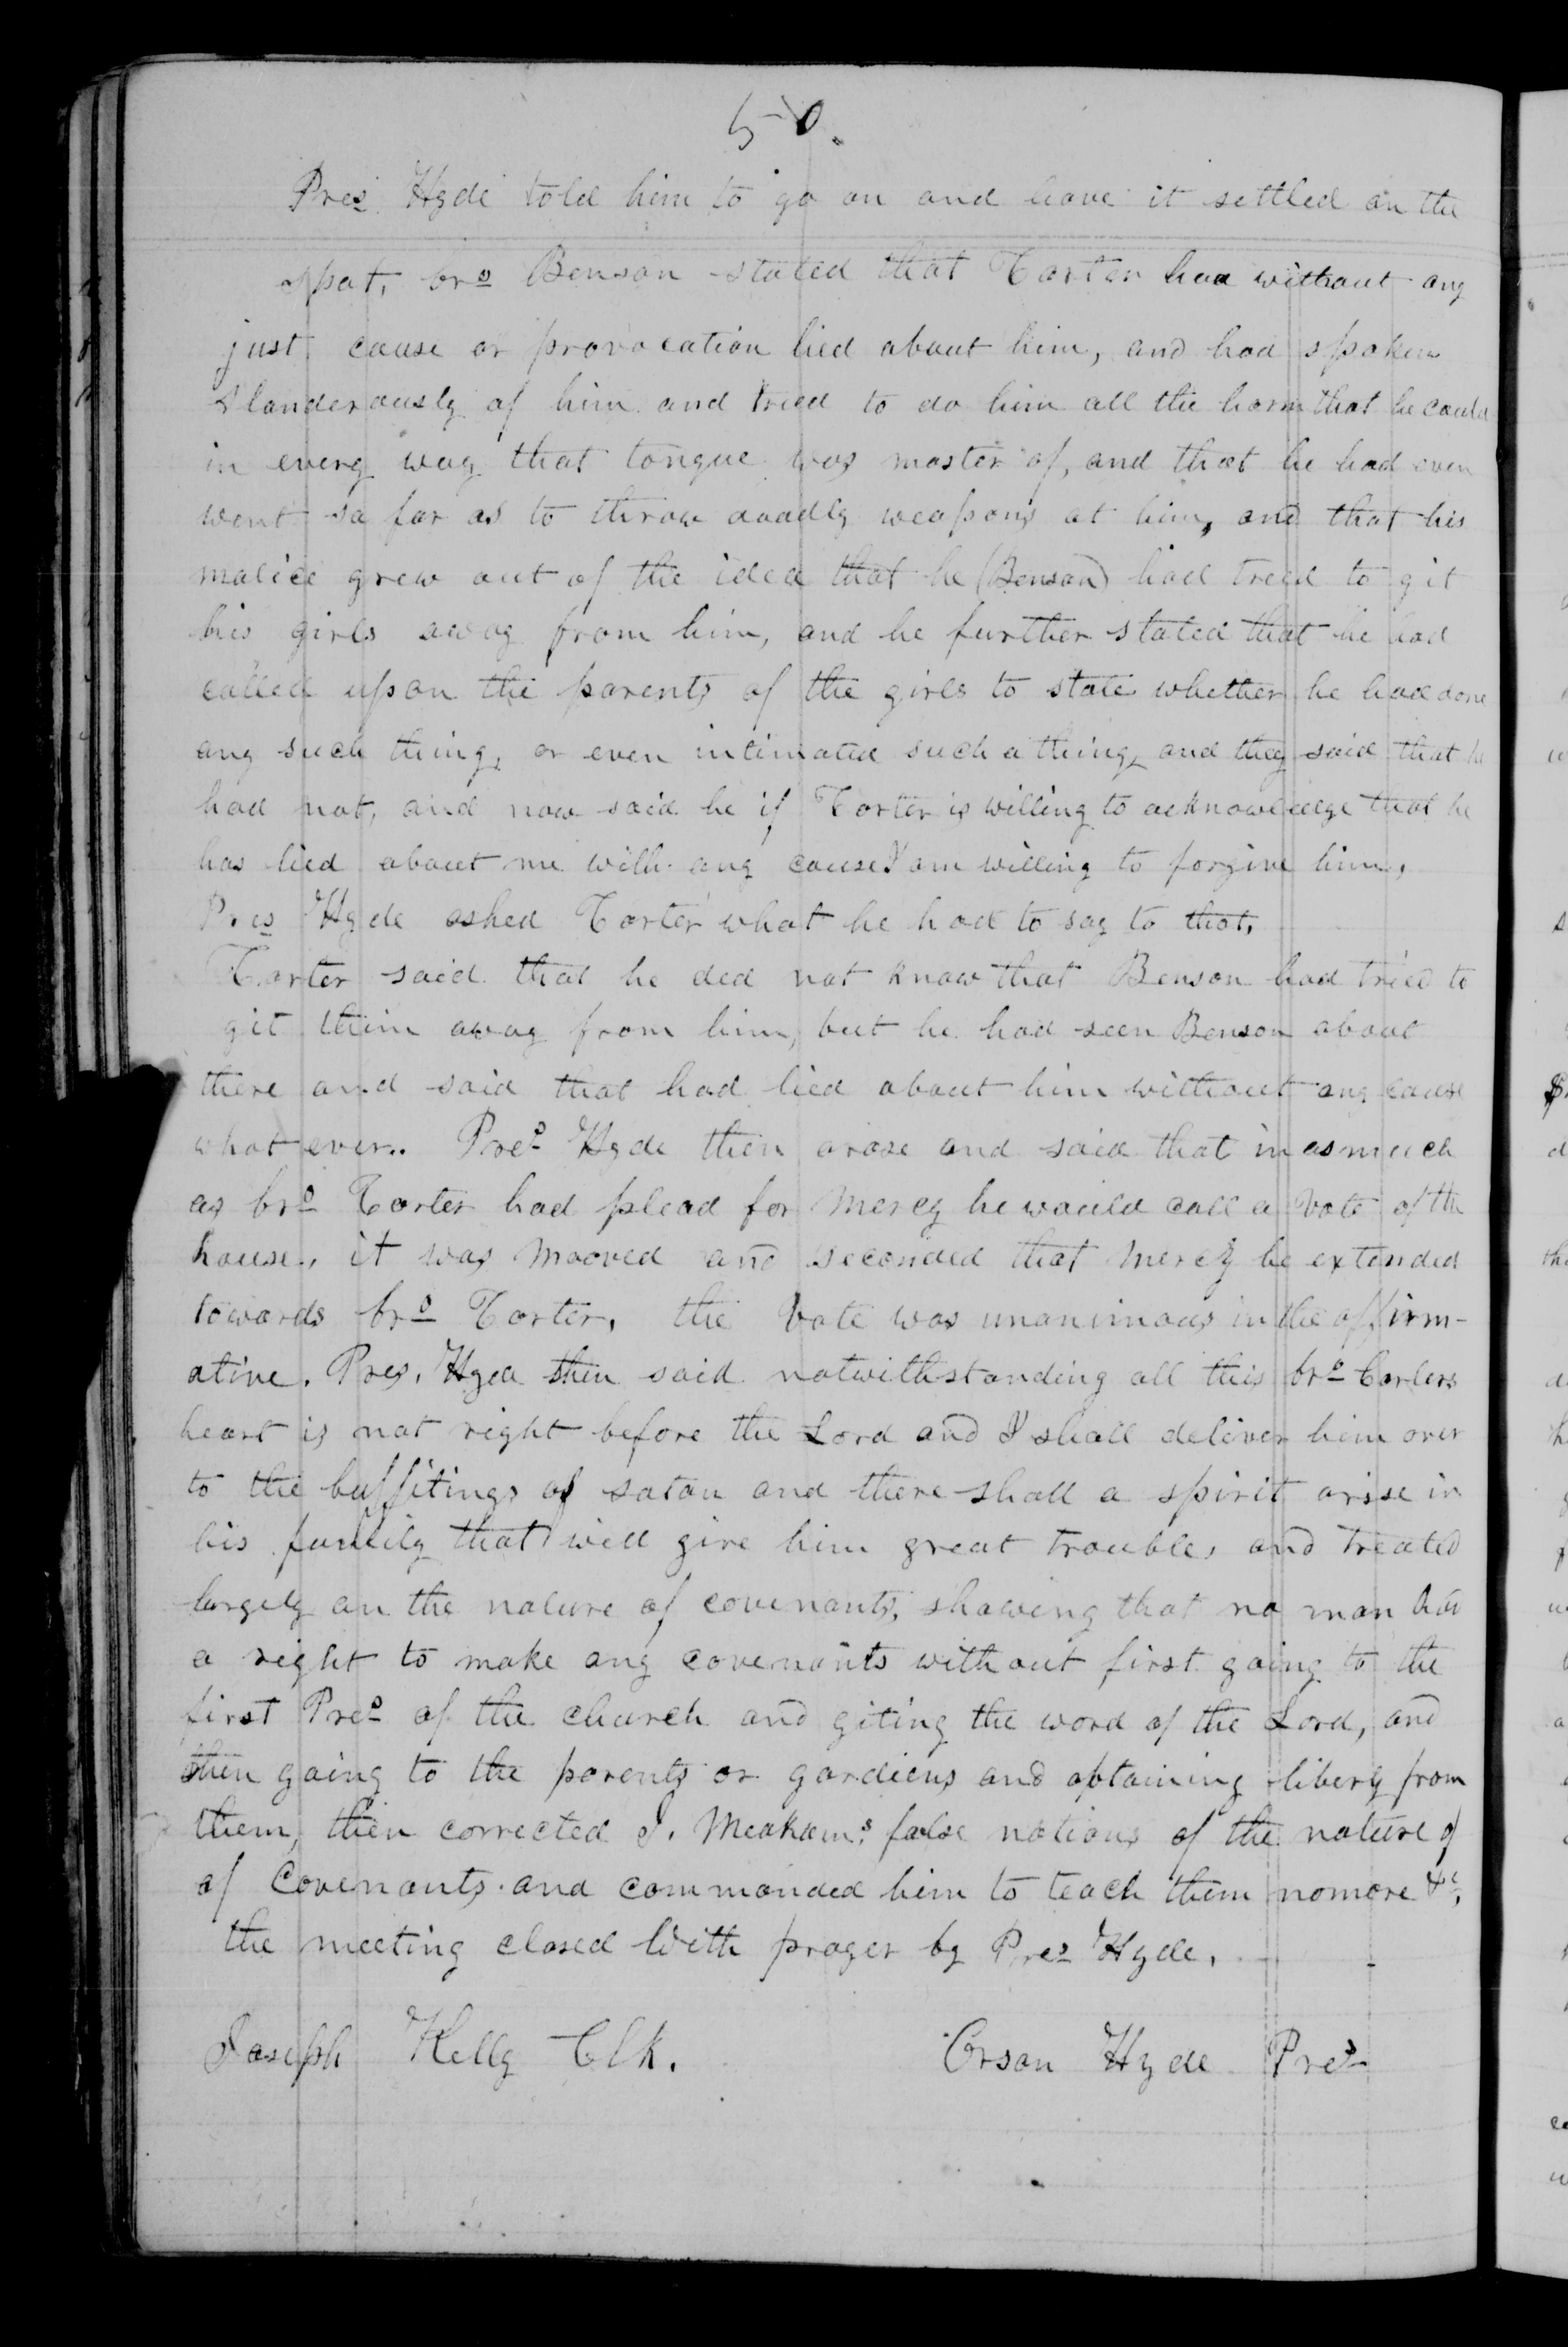 50.
Pres Hyde told him to go on and have it settled on the
spot, bro Benson stated that Carter had without any
just cause or provocation lied about him, and had spoken
Slanderously of him and tried to do him all the harm that he could
in every way that tongue was master of, and that he had even
went so far as to throw deadly weapons at him, and that his
malice grew out of the idea that he (Benson) had tried to git
his girls away from him, and he further stated that he had
called upon the parents of the girls to state whether he had done
any such thing, or even intimated such a thing, and they said that he
had not, and now said he if Carter is willing to acknowledge that he
has lied about me with any cause I am willing to forgive him,
Pres Hyde asked Carter what he had to say to that,
Carter said that he ded not know that Benson had tried to
git them away from him, but he had seen Benson about
there and said that had lied about him without any cause
what ever.. Pres Hyde then arose and said that in as much
as bro Carter had plead for mercy he would call a vote of the
house, it was mooved and seconded that mercy be extended
towards bro Carter, the vote was unanimous in the affirm-
ative. Pres, Hyde then said notwithstanding all this bro Carters
heart is not right before the Lord and I shall deliver him over
to the buffitings of satan and there shall a spirit arise in
his family that will give him great trouble, and treated
largely on the nature of covenants, showing that no man has
a right to make any covenants without first going to the
first Pres of the church and giting the word of the Lord, and
then going to the parents or gardiens and obtaining liberty from
them, then corrected J. Meakam,s false notions of the nature of
of Covenants and commanded him to teach them nomore &c,
the meeting closed with prayer by Pres Hyde,
Joseph Kelly Clk. Orson Hyde Pres